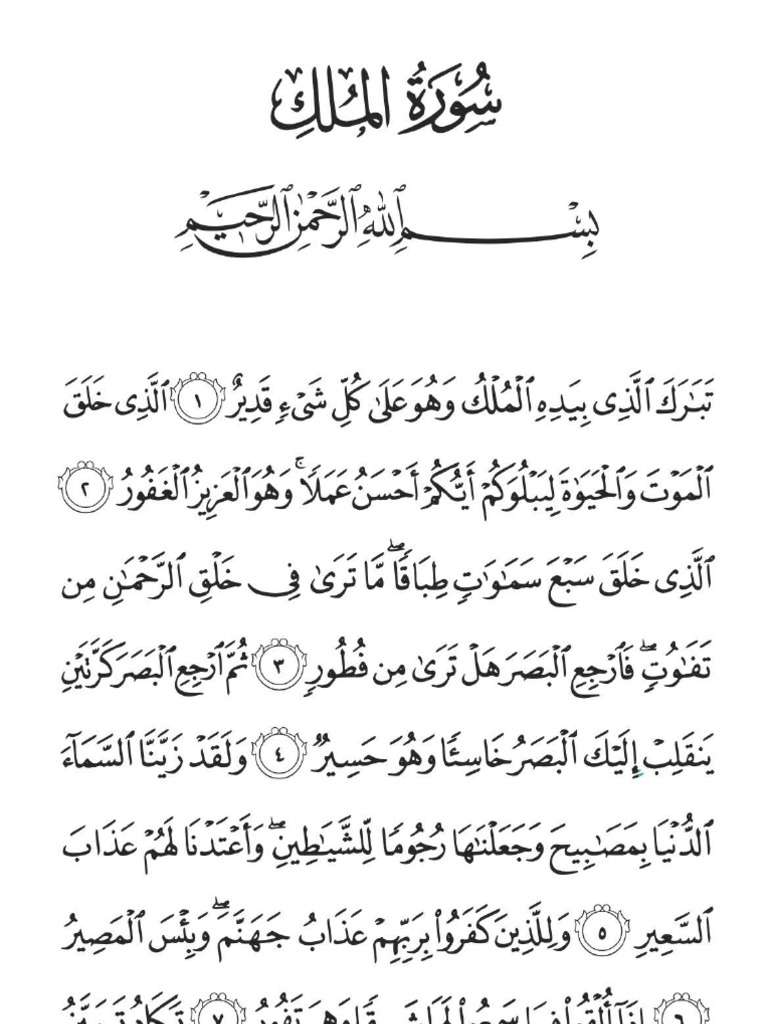 سُورَةُ الْمُلْكِ
بِسْمِ ٱللَّهِ ٱلرَّحْمَٰنِ ٱلرَّحِيمِ
تَبَٰرَكَ ٱلَّذِى بِيَدِهِ ٱلْمُلْكُ وَهُوَ عَلَىٰ كُلِّ شَىْءٍ قَدِيرٌ ١ ٱلَّذِى خَلَقَ
ٱلْمَوْتَ وَٱلْحَيَوٰةَ لِيَبْلُوَكُمْ أَيُّكُمْ أَحْسَنُ عَمَلًا ۚ وَهُوَ ٱلْعَزِيزُ ٱلْغَفُورُ ٢
ٱلَّذِى خَلَقَ سَبْعَ سَمَٰوَٰتٍ طِبَاقًا ۖ مَّا تَرَىٰ فِى خَلْقِ ٱلرَّحْمَٰنِ مِن
تَفَٰوُتٍ ۖ فَٱرْجِعِ ٱلْبَصَرَ هَلْ تَرَىٰ مِن فُطُورٍ ٣ ثُمَّ ٱرْجِعِ ٱلْبَصَرَ كَرَّتَيْنِ
يَنقَلِبْ إِلَيْكَ ٱلْبَصَرُ خَاسِئًا وَهُوَ حَسِيرٌ ٤ وَلَقَدْ زَيَّنَّا ٱلسَّمَآءَ
ٱلدُّنْيَا بِمَصَٰبِيحَ وَجَعَلْنَٰهَا رُجُومًا لِّلشَّيَٰطِينِ ۖ وَأَعْتَدْنَا لَهُمْ عَذَابَ
ٱلسَّعِيرِ ٥ وَلِلَّذِينَ كَفَرُوا۟ بِرَبِّهِمْ عَذَابُ جَهَنَّمَ ۖ وَبِئْسَ ٱلْمَصِيرُ
٦ إِذَآ أُلْقُوا۟ فِيهَا سَمِعُوا۟ لَهَا شَهِيقًا وَهِىَ تَفُورُ ٧ تَكَادُ تَمَيَّزُ